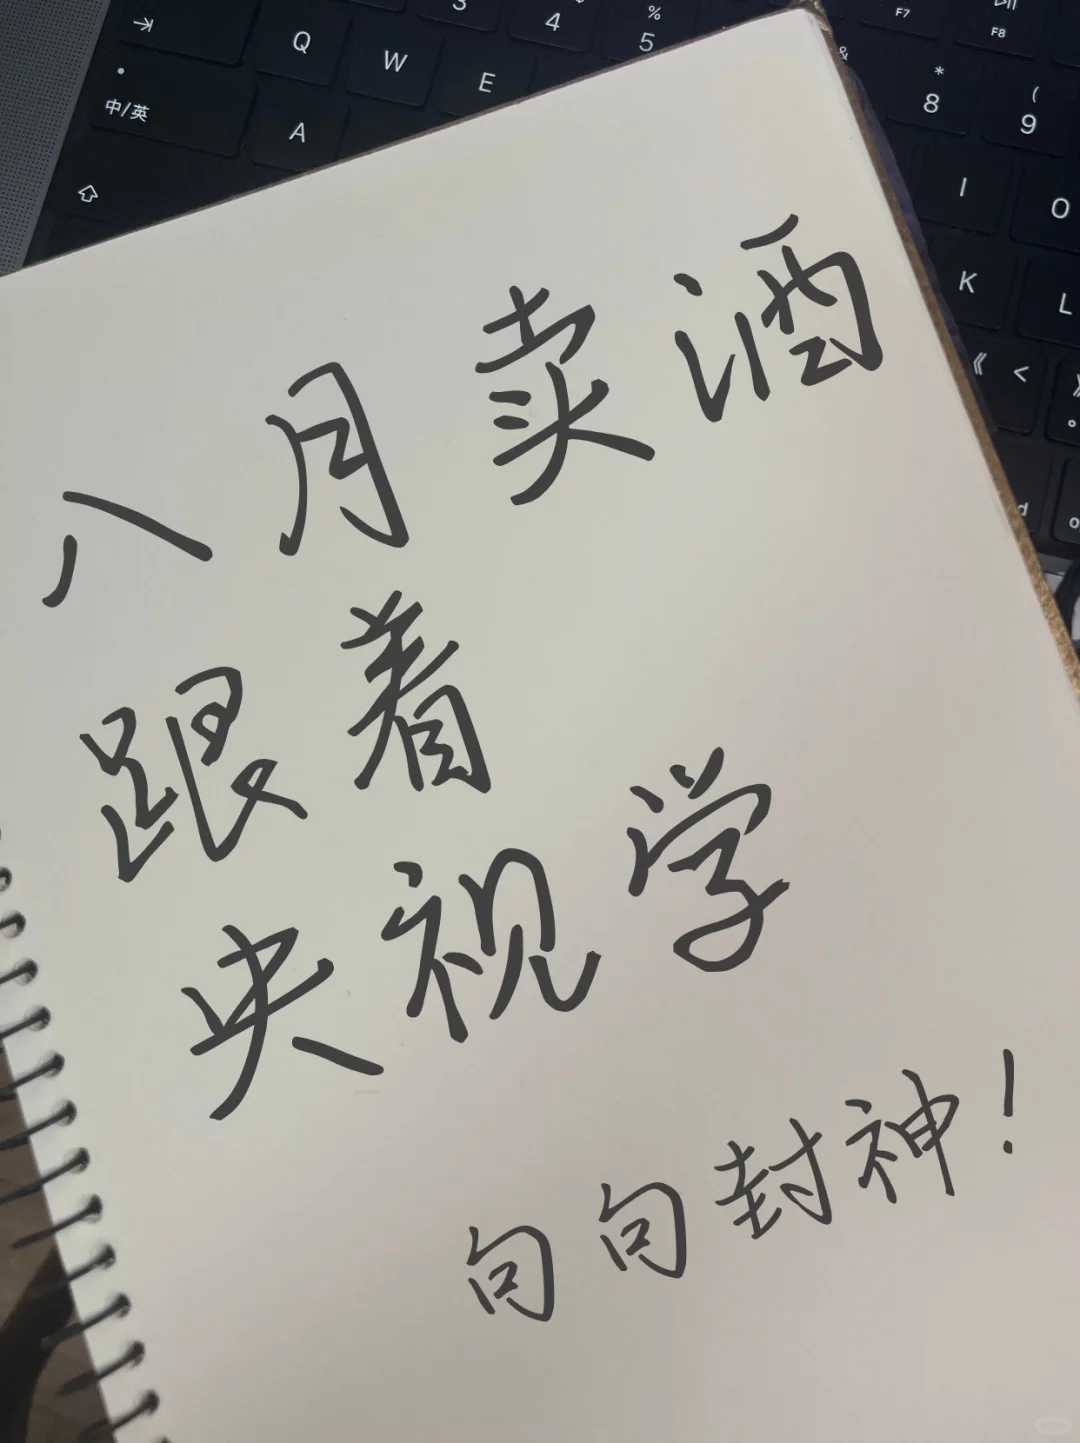 3 $ 4 % 5 F7 F8
Q W E & * 8 ( 9
中/英 A I O
K L
《 <
八月卖酒
跟着
央视学
句句封神！